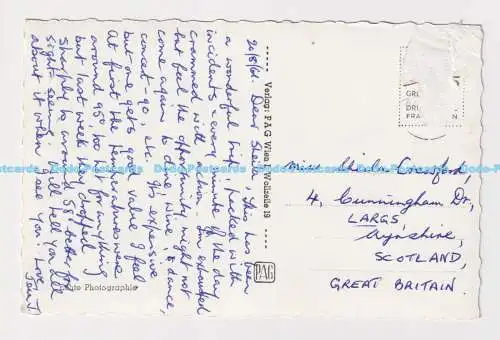 26/8/61. Dear Sheila, This has been
a wonderful trip, packed with
incidents - every minute of the day
crammed with action. I'm exhausted
but feel the opportunity might not
come again to dine, wine, & dance,
concert-go, etc. It's expensive
but one gets good value I feel.
At first the temperatures were
around 95°, too hot for anything
but last week they dropped
sharply to around 58°, better for
sight-seeing. I'll tell you all
about it when I see you! Love,
Verlag: PAG Wien I Wollzeile 19
PAG
Photographie
Miss Sheila Crawford,
4, Cunningham Dr,
LARGS
Ayrshire,
SCOTLAND,
GREAT BRITAIN.
Dodo Postcards